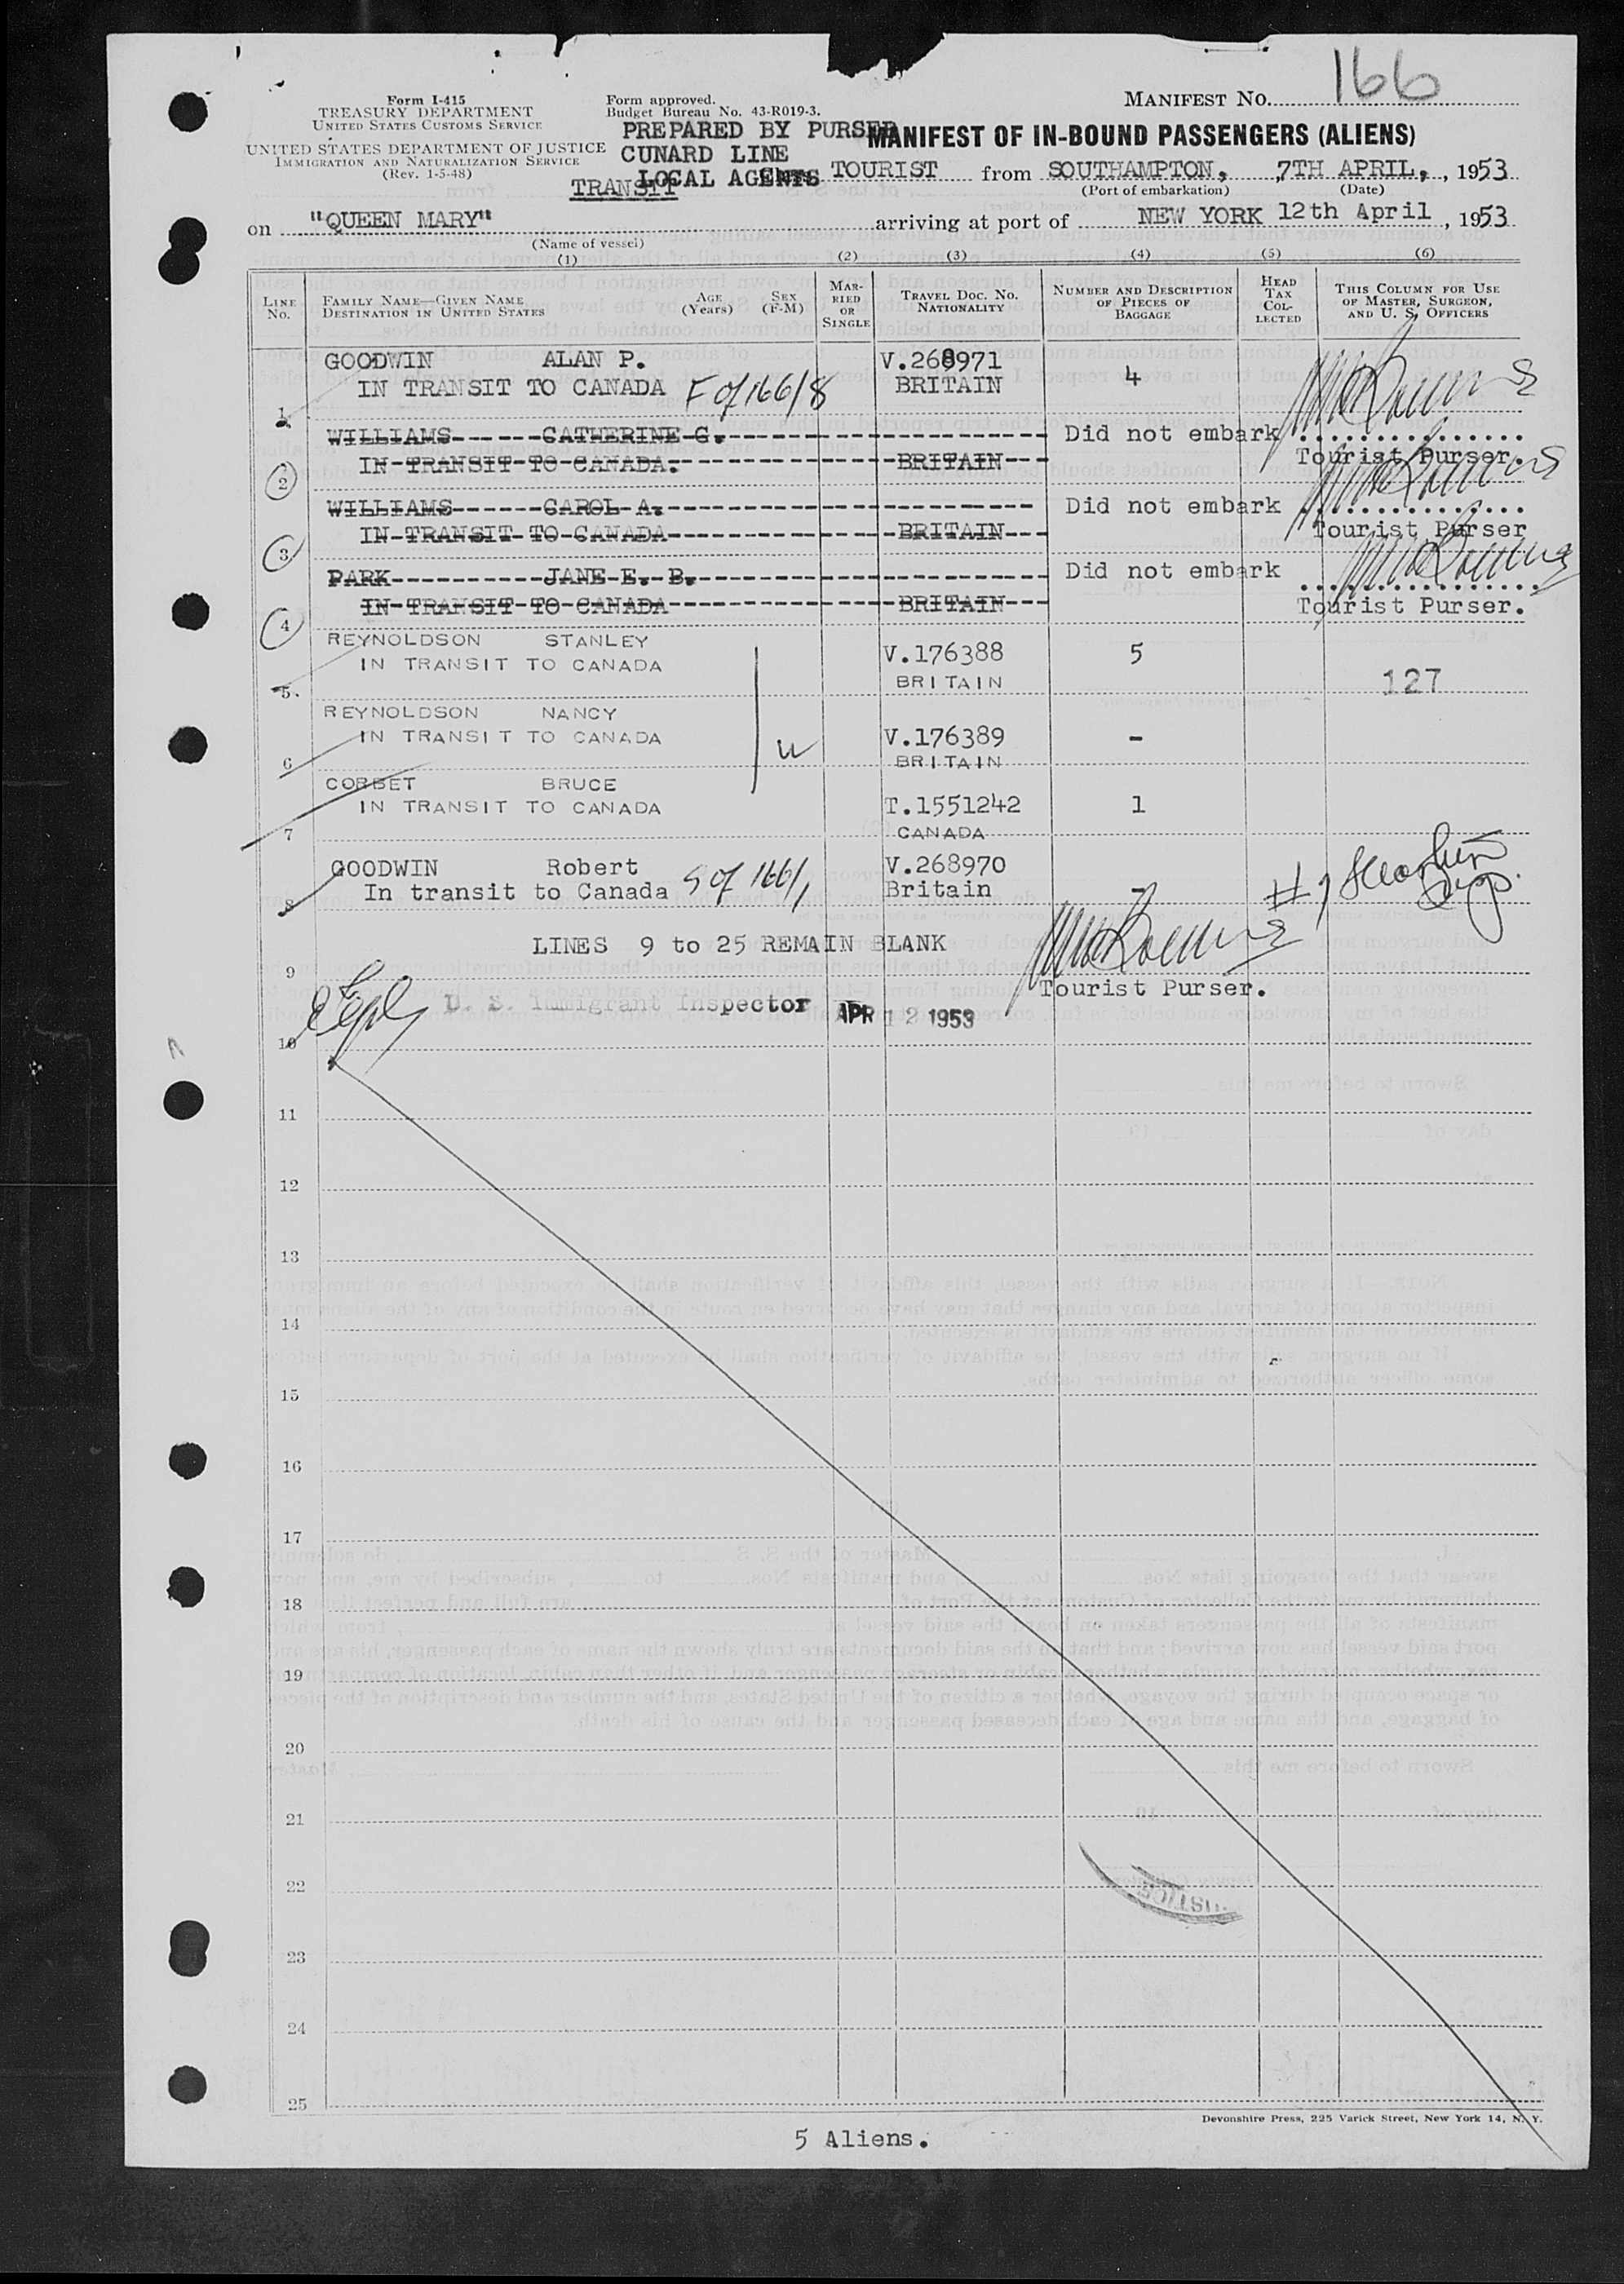 166
Form I-415
TREASURY DEPARTMENT
UNITED STATES CUSTOMS SERVICE
UNITED STATES DEPARTMENT OF JUSTICE
IMMIGRATION AND NATURALIZATION SERVICE
(Rev. 1-5-48)
Form approved.
Budget Bureau No. 43-R019-3.
PREPARED BY PURSER
CUNARD LINE
LOCAL AGENTS
TRANSIT
MANIFEST NO.
MANIFEST OF IN-BOUND PASSENGERS (ALIENS)
Class TOURIST from SOUTHAMPTON, 7TH APRIL, 1953
(Port of embarkation) (Date)
on "QUEEN MARY" arriving at port of NEW YORK 12th April, 1953
(Name of vessel)
(1) (2) (3) (4) (5) (6)
LINE NO.
FAMILY NAME—GIVEN NAME DESTINATION IN UNITED STATES
AGE (Years)
SEX (F-M)
MARRIED OR SINGLE
TRAVEL DOC. NO. NATIONALITY
NUMBER AND DESCRIPTION OF PIECES OF BAGGAGE
HEAD TAX COLLECTED
THIS COLUMN FOR USE OF MASTER, SURGEON, AND U. S. OFFICERS
GOODWIN ALAN P. V.268971
1 IN TRANSIT TO CANADA F of 166/8 BRITAIN 4
WILLIAMS------CATHERINE G. Did not embark
2 IN-TRANSIT-TO-CANADA. BRITAIN Tourist Purser.
WILLIAMS------CAROL-A. Did not embark
3 IN-TRANSIT-TO-CANADA BRITAIN Tourist Purser
PARK----------JANE-E.-B. Did not embark
4 IN-TRANSIT-TO-CANADA BRITAIN Tourist Purser.
REYNOLDSON STANLEY V.176388 5
5. IN TRANSIT TO CANADA BRITAIN 127
REYNOLDSON NANCY
6 IN TRANSIT TO CANADA V.176389 -
BRITAIN
CORBET BRUCE
7 IN TRANSIT TO CANADA T.1551242 1
CANADA
GOODWIN Robert V.268970
8 In transit to Canada S of 166/1 Britain -
LINES 9 to 25 REMAIN BLANK
9 Tourist Purser.
U. S. Immigrant Inspector APR 12 1953
10
11
12
13
14
15
16
17
18
19
20
21
22
23
24
25
Devonshire Press, 225 Varick Street, New York 14, N. Y.
5 Aliens.